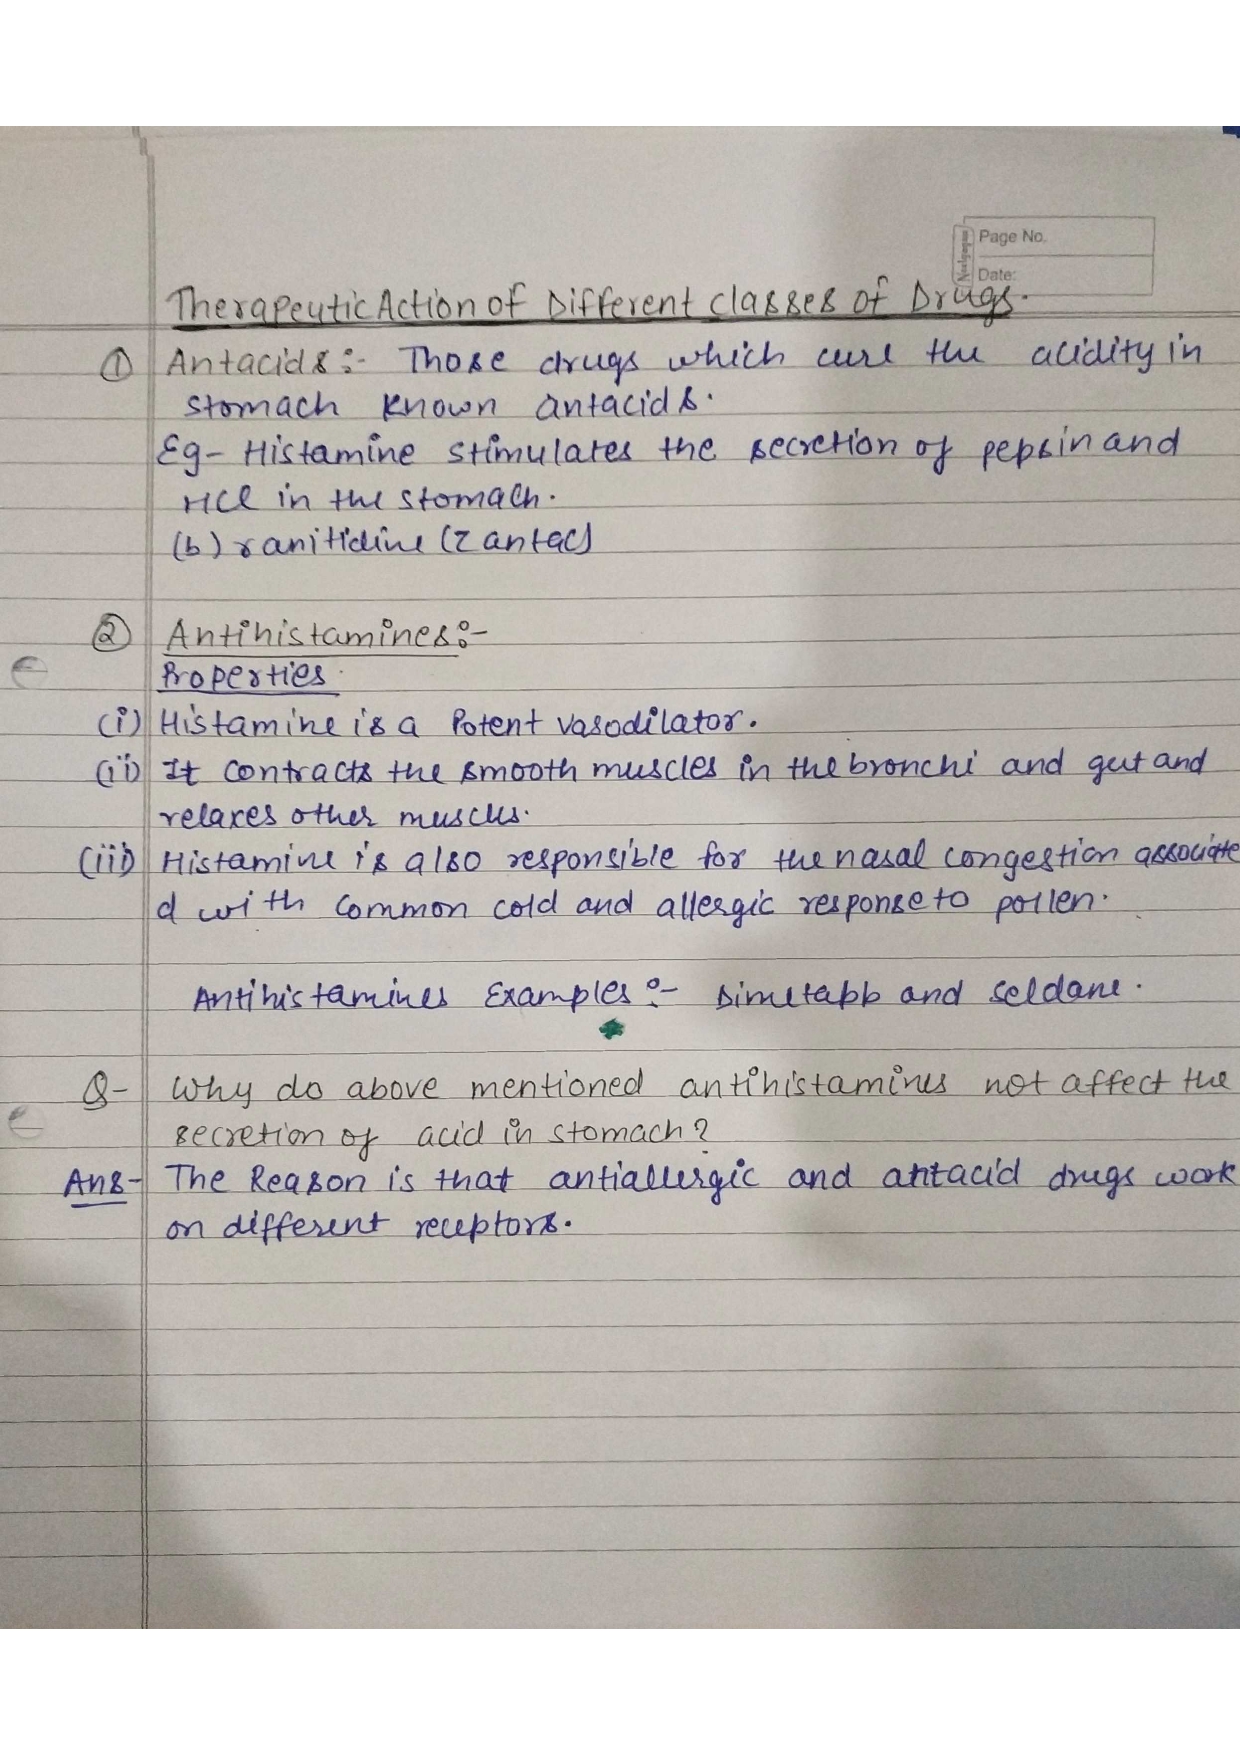 Page No.
Date:
Therapeutic Action of Different classes of Drugs.
① Antacids:- Those drugs which cure the acidity in
stomach known antacids.
Eg- Histamine stimulates the secretion of pepsin and
HCl in the stomach.
(b) ranitidine (Zantac)
② Antihistamines:-
Properties
(i) Histamine is a Potent vasodilator.
(ii) It contracts the smooth muscles in the bronchi and gut and
relaxes other muscles.
(iii) Histamine is also responsible for the nasal congestion associate
d with common cold and allergic response to pollen.
Antihistamines Examples:- Dimetapp and seldane.
Q- Why do above mentioned antihistamines not affect the
secretion of acid in stomach?
Ans- The Reason is that antiallergic and antacid drugs work
on different receptors.